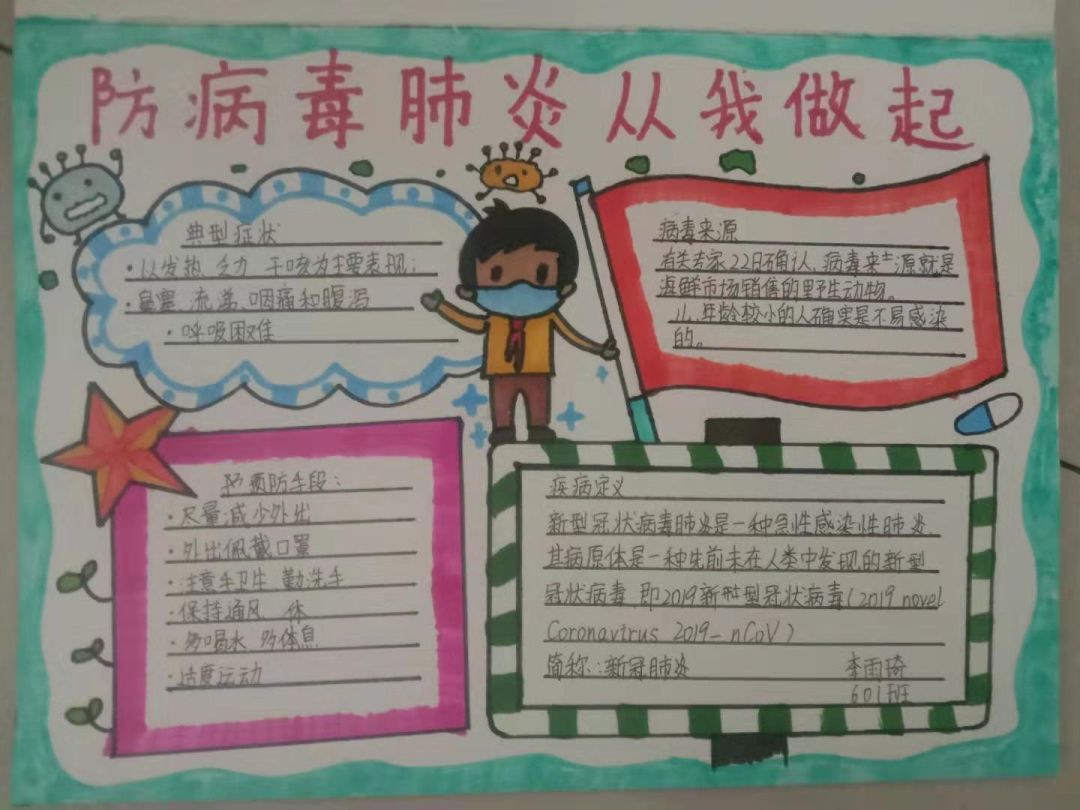 防病毒肺炎从我做起
典型症状
·以发热 乏力 干咳为主要表现;
·鼻塞 流涕 咽痛和腹泻
·呼吸困难
病毒来源
有关专家22日确认,病毒来源就是
海鲜市场销售的野生动物。
儿,年龄较小的人确实是不易感染
的。
预防手段:
·尽量减少外出
·外出佩戴口罩
·注意手卫生 勤洗手
·保持通风 体
·多喝水 多休息
·适度运动
疾病定义
新型冠状病毒肺炎是一种急性感染性肺炎、
其病原体是一种先前未在人类中发现的新型
冠状病毒,即2019新型冠状病毒(2019 novel
Coronavirus 2019-nCoV)
简称:新冠肺炎
李雨琦
601班